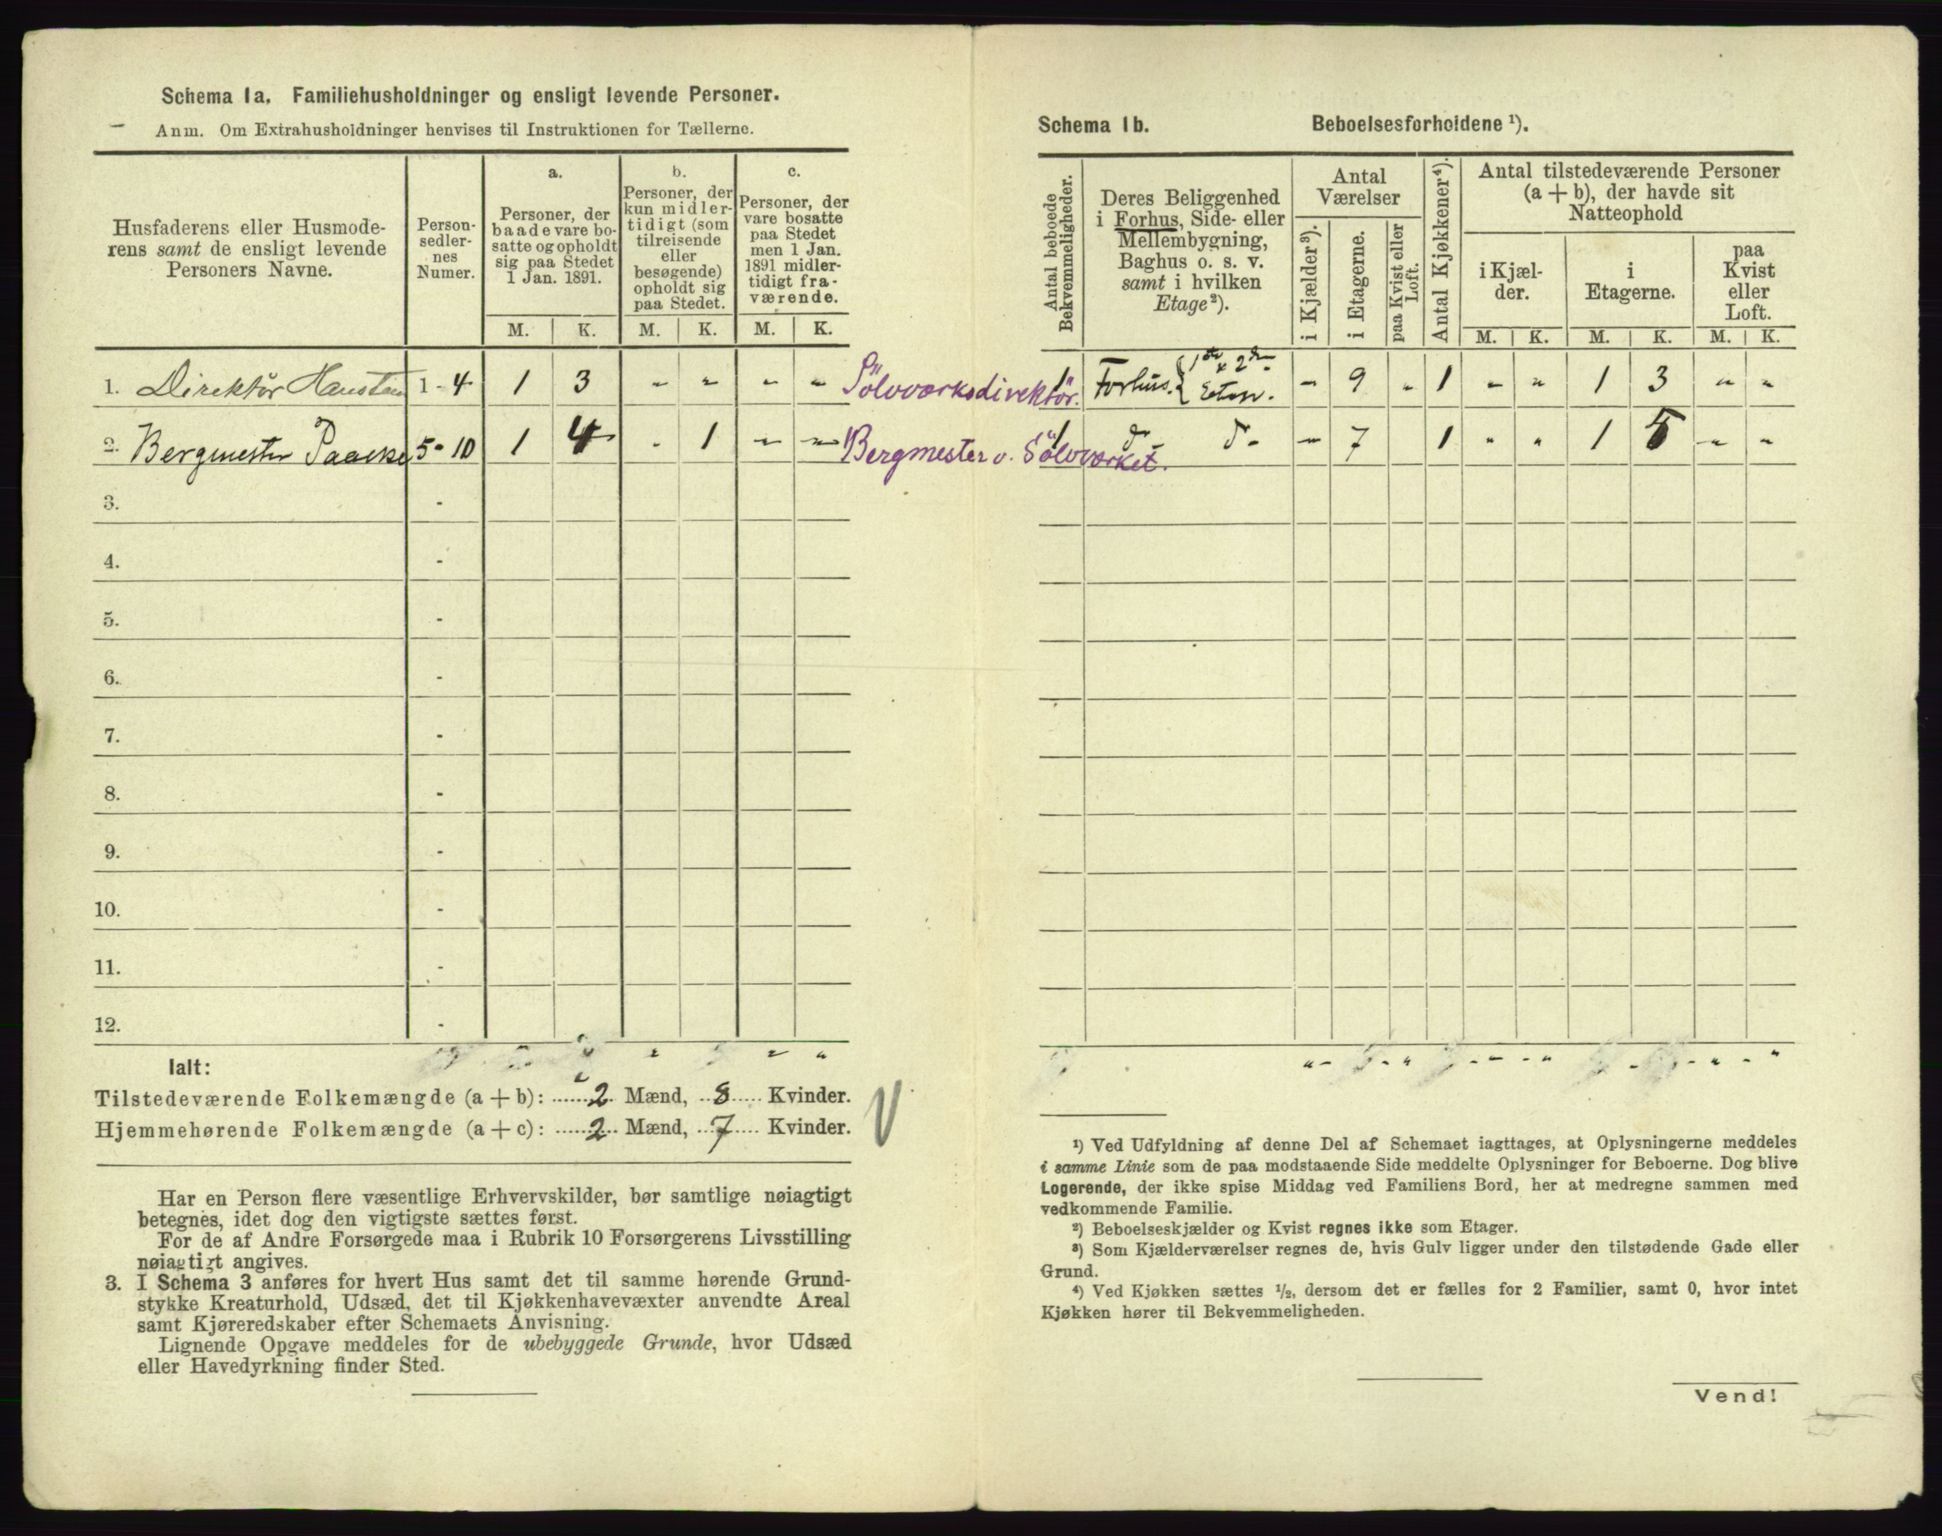 Schema 1a. Familiehusholdninger og ensligt levende Personer.
Anm. Om Extrahusholdninger henvises til Instruktionen for Tællerne.
Husfaderens eller Husmode-
rens samt de ensligt levende
Personers Navne.
Person-
sedler-
nes
Numer.
a.
Personer, der
baade vare bo-
satte og opholdt
sig paa Stedet
1 Jan. 1891.
b.
Personer, der
kun midler-
tidigt (som
tilreisende
eller
besøgende)
opholdt sig
paa Stedet.
c.
Personer, der
vare bosatte
paa Stedet
men 1 Jan.
1891 midler-
tidigt fra-
værende.
M. K. M. K. M. K.
1. Direktör 1 - 4 1 3 " " " " Sölvværksdirektör.
2. Bergmester Paaske 5 - 10 1 4 - 1 " " Bergmester v. Sölvværket.
3. -
4. -
5. -
6. -
7. -
8. -
9. -
10. -
11. -
12. -
Ialt:
Tilstedeværende Folkemængde (a + b): 2 Mænd, 8 Kvinder.
Hjemmehørende Folkemængde (a + c): 2 Mænd, 7 Kvinder.
Har en Person flere væsentlige Erhvervskilder, bør samtlige nøiagtigt
betegnes, idet dog den vigtigste sættes først.
For de af Andre Forsørgede maa i Rubrik 10 Forsørgerens Livsstilling
nøiagtigt angives.
3. I Schema 3 anføres for hvert Hus samt det til samme hørende Grund-
stykke Kreaturhold, Udsæd, det til Kjøkkenhavevæxter anvendte Areal
samt Kjøreredskaber efter Schemaets Anvisning.
Lignende Opgave meddeles for de ubebyggede Grunde, hvor Udsæd
eller Havedyrkning finder Sted.
Schema 1b. Beboelsesforholdene ¹).
Antal beboede
Bekvemmeligheder.
Deres Beliggenhed
i Forhus, Side- eller
Mellembygning,
Baghus o. s. v.
samt i hvilken
Etage²).
Antal
Værelser
i Kjælder³).
i Etagerne.
paa Kvist eller
Loft.
Antal Kjøkkener⁴).
Antal tilstedeværende Personer
(a + b), der havde sit
Natteophold
i Kjæl-
der.
i
Etagerne.
paa
Kvist
eller
Loft.
M. K. M. K. M. K.
1 Forhus. { 1ste & 2den Etage. - 9 " 1 " " 1 3 " "
1 do do - 7 1 " " 1 5 " "
¹) Ved Udfyldning af denne Del af Schemaet iagttages, at Oplysningerne meddeles
i samme Linie som de paa modstaaende Side meddelte Oplysninger for Beboerne. Dog blive
Logerende, der ikke spise Middag ved Familiens Bord, her at medregne sammen med
vedkommende Familie.
²) Beboelseskjælder og Kvist regnes ikke som Etager.
³) Som Kjælderværelser regnes de, hvis Gulv ligger under den tilstødende Gade eller
Grund.
⁴) Ved Kjøkken sættes ½, dersom det er fælles for 2 Familier, samt 0, hvor intet
Kjøkken hører til Bekvemmeligheden.
Vend!